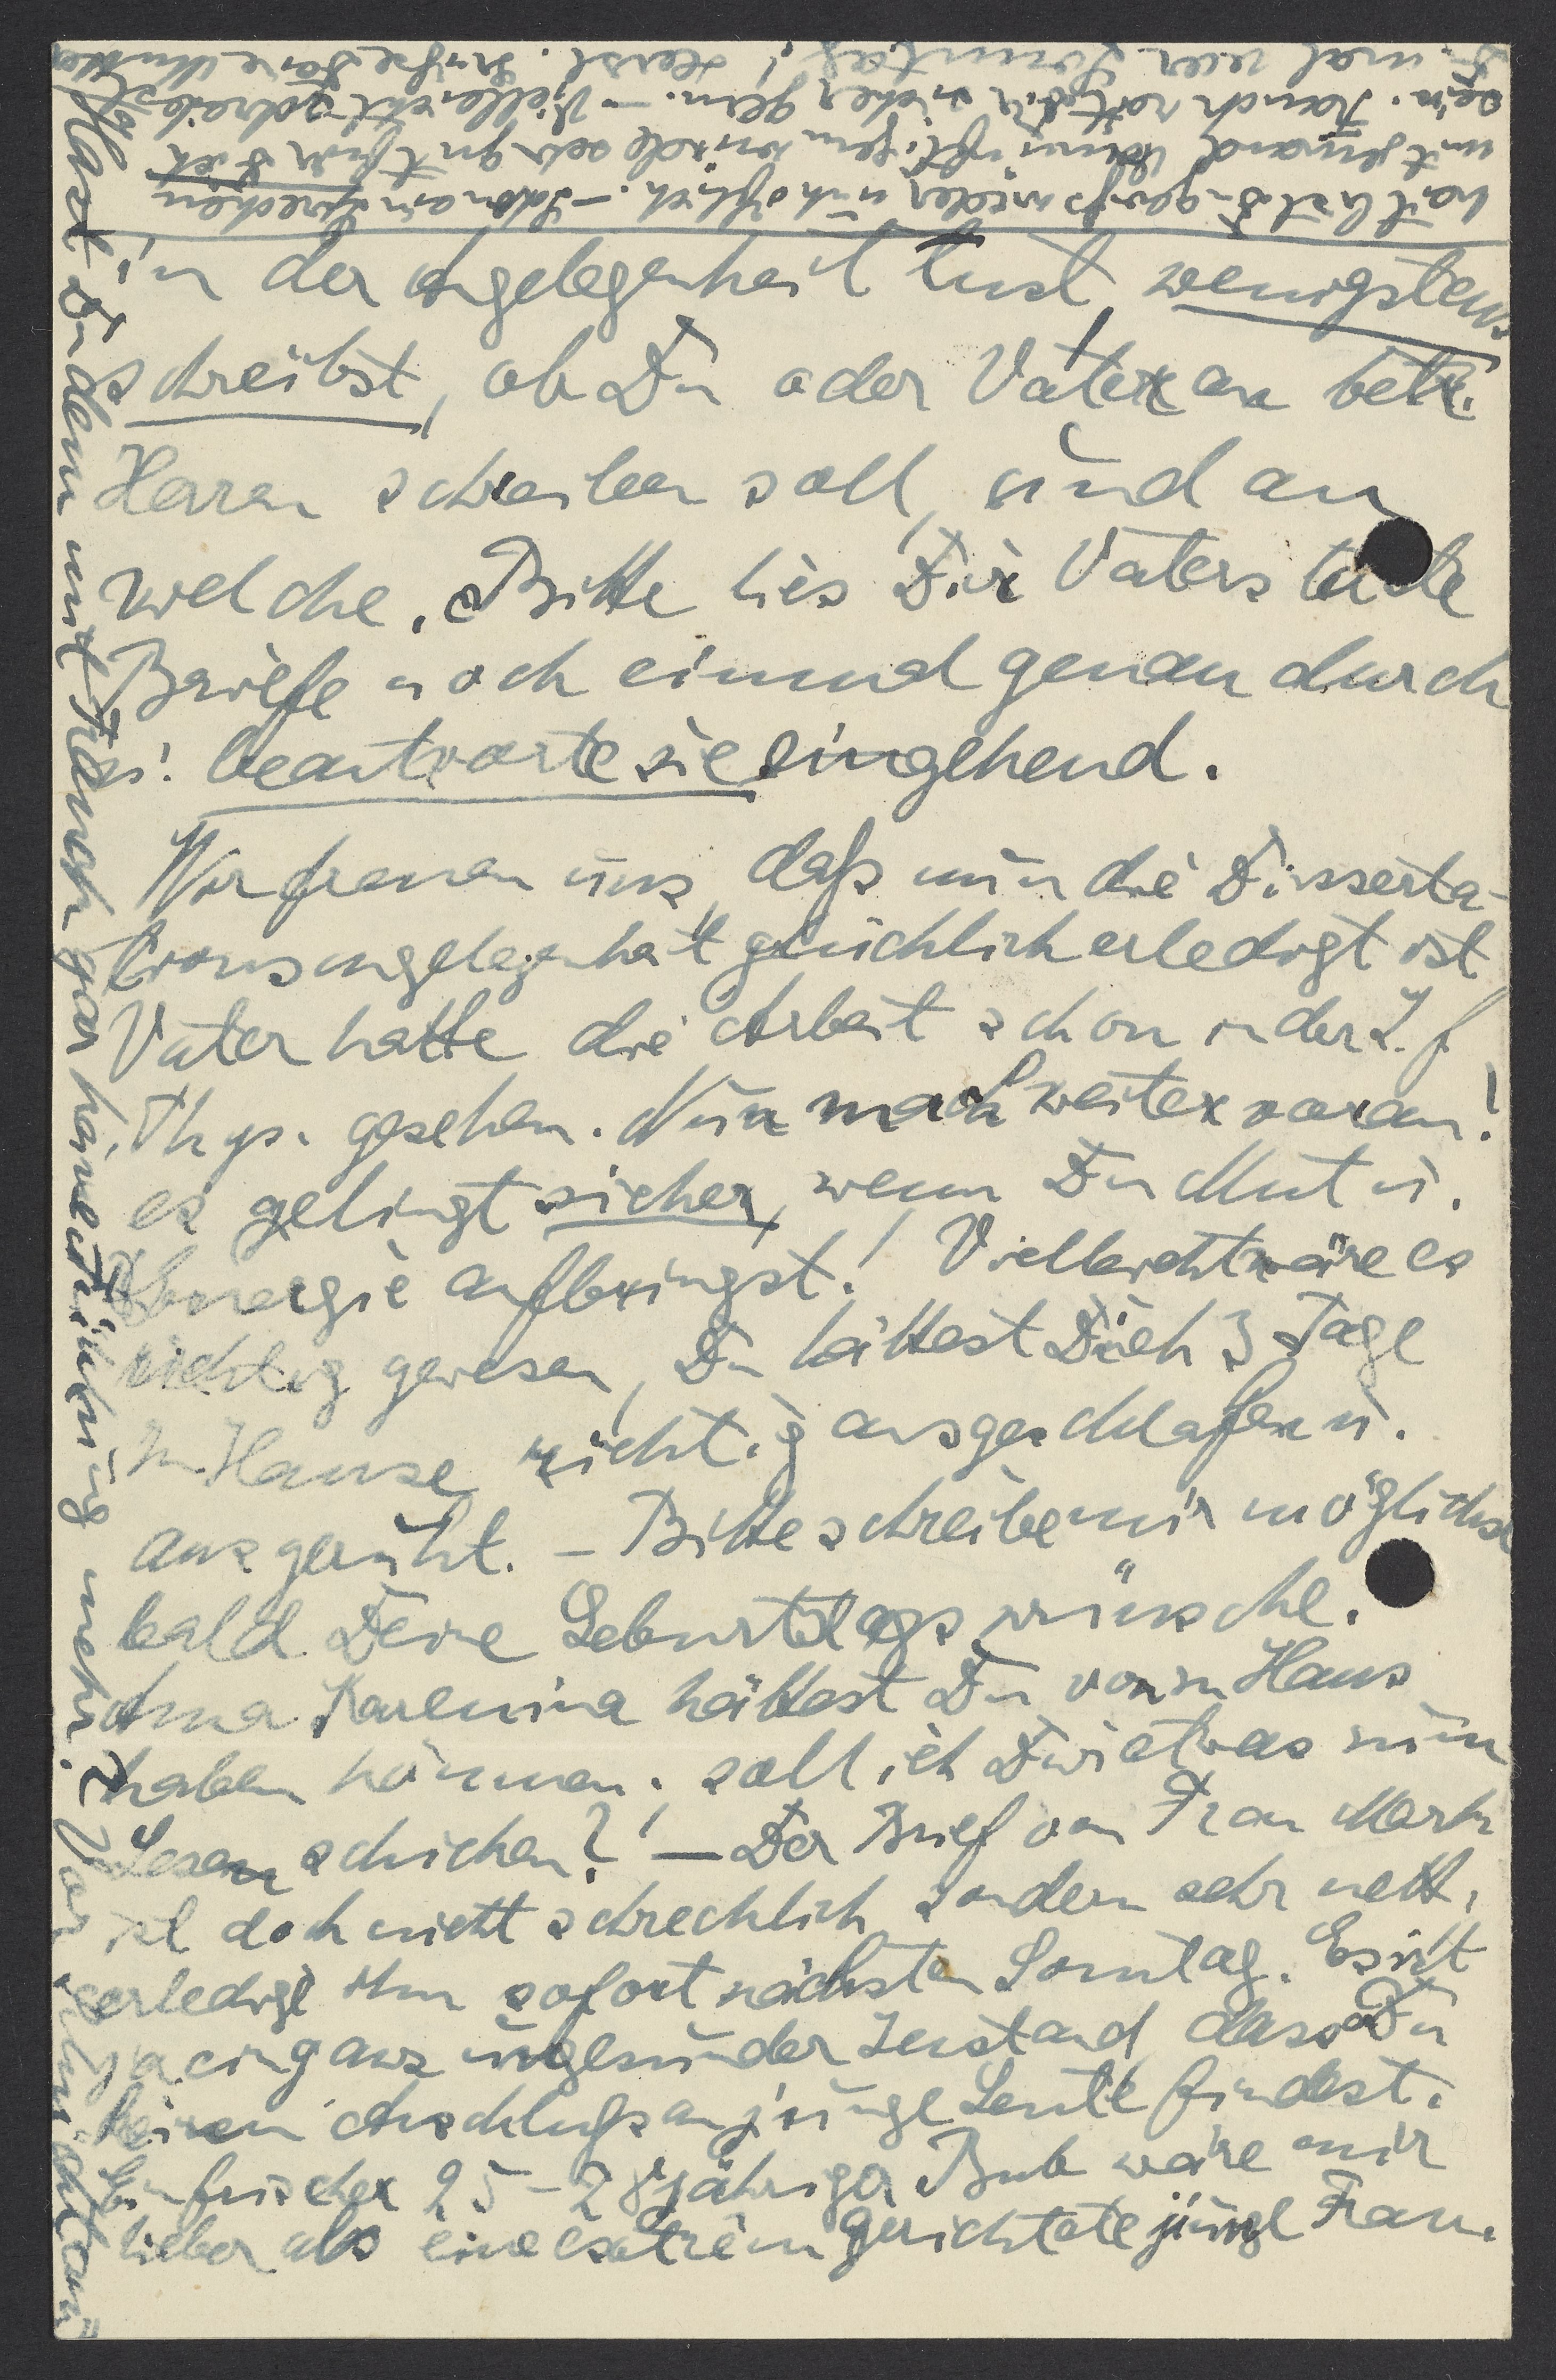 in der Angelegenheit tust, wenigstens
schreibst, ob Du oder Vater an betr.
Herren schreiben soll, und an
welche. Bitte lies Dir Vaters letzte
Briefe noch einmal genau durch
u. beantworte sie eingehend.
Wir freuen uns, daß nun die Disserta-
tionsangelegenheit glücklich erledigt ist
Vater hatte die Arbeit schon in der Z. f
Phys. gesehen. Nun mach weiter voran!
es gelingt sicher, wenn Du Mut u.
Energie aufbringst! Vielleicht wäre es
richtig gewesen, Du hättest Dich 3 Tage
zu Hause richtig ausgeschlafen u.
ausgeruht. – Bitte schreibe mir möglichst
bald Deine Geburtstagswünsche.
Anna Karenina hättest Du von zu Haus
haben können. soll ich Dir etwas zum
Lesen schicken? – Der Brief von Frau
ist doch nicht schrecklich, sondern sehr nett,
erledige ihn sofort nächsten Sonntag. Es ist
ja ein ganz ungesunder Zustand, dass Du
keinen Anschluß an junge Leute findest.
Ein frischer 25–28jähriger Bub wäre mir
lieber als eine extrem gerichtete junge Frau.
Hast Du denn mit Franck gar keine Fühlung mehr?
hast Du
mit jemand vernünftigem würde sehr gut für Dich
sein. Franck rät Dir sicher gern. – Vielleicht schreibst
Du mal Sonntag! Herzl. Grüße Deine Mutter